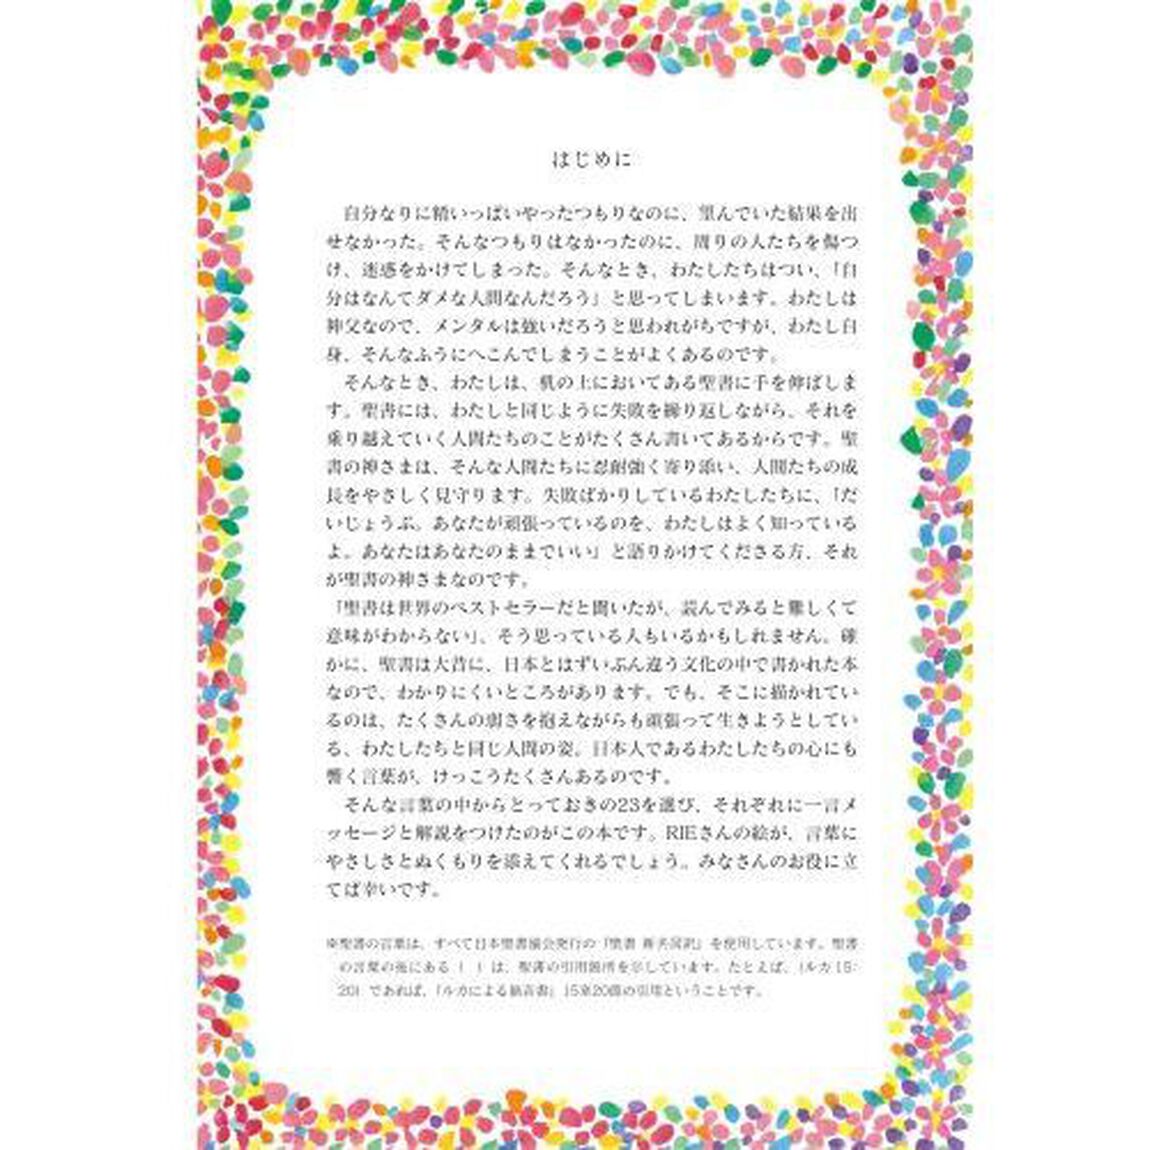 はじめに
自分なりに精いっぱいやったつもりなのに、望んでいた結果を出
せなかった。そんなつもりはなかったのに、周りの人たちを傷つ
け、迷惑をかけてしまった。そんなとき、わたしたちはつい、「自
分はなんてダメな人間なんだろう」と思ってしまいます。わたしは
神父なので、メンタルは強いだろうと思われがちですが、わたし自
身、そんなふうにへこんでしまうことがよくあるのです。
そんなとき、わたしは、机の上においてある聖書に手を伸ばしま
す。聖書には、わたしと同じように失敗を繰り返しながら、それを
乗り越えていく人間たちのことがたくさん書いてあるからです。聖
書の神さまは、そんな人間たちに忍耐強く寄り添い、人間たちの成
長をやさしく見守ります。失敗ばかりしているわたしたちに、「だ
いじょうぶ。あなたが頑張っているのを、わたしはよく知っている
よ。あなたはあなたのままでいい」と語りかけてくださる方、それ
が聖書の神さまなのです。
「聖書は世界のベストセラーだと聞いたが、読んでみると難しくて
意味がわからない」、そう思っている人もいるかもしれません。確
かに、聖書は大昔に、日本とはずいぶん違う文化の中で書かれた本
なので、わかりにくいところがあります。でも、そこに描かれてい
るのは、たくさんの弱さを抱えながらも頑張って生きようとしてい
る、わたしたちと同じ人間の姿。日本人であるわたしたちの心にも
響く言葉が、けっこうたくさんあるのです。
そんな言葉の中からとっておきの23を選び、それぞれに一言メ
ッセージと解説をつけたのがこの本です。RIEさんの絵が、言葉に
やさしさとぬくもりを添えてくれるでしょう。みなさんのお役に立
てば幸いです。
※聖書の言葉は、すべて日本聖書協会発行の『聖書 新共同訳』を使用しています。聖書
の言葉の後にある（　）は、聖書の引用箇所を示しています。たとえば、（ルカ15:
20）であれば、「ルカによる福音書」15章20節の引用ということです。